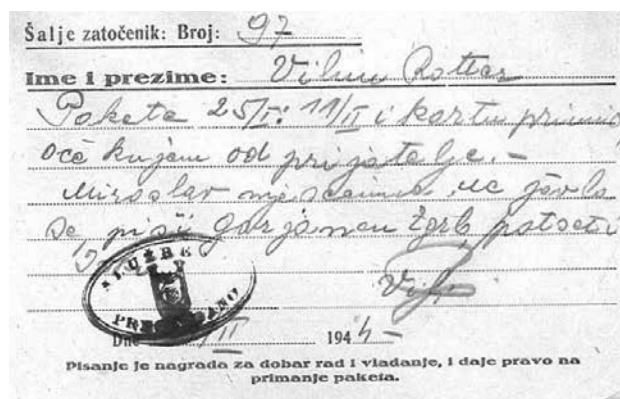 Šalje zatočenik: Broj: 97
Ime i prezime:
Paketa 25/I i 11/II i kartu primio
oče kujem od prijatelje. –
Miroslav ne javlja
se, piši Zgrb, potseti
Dne /II 1944 –
Pisanje je nagrada za dobar rad i vladanje, i daje pravo na
primanje paketa.